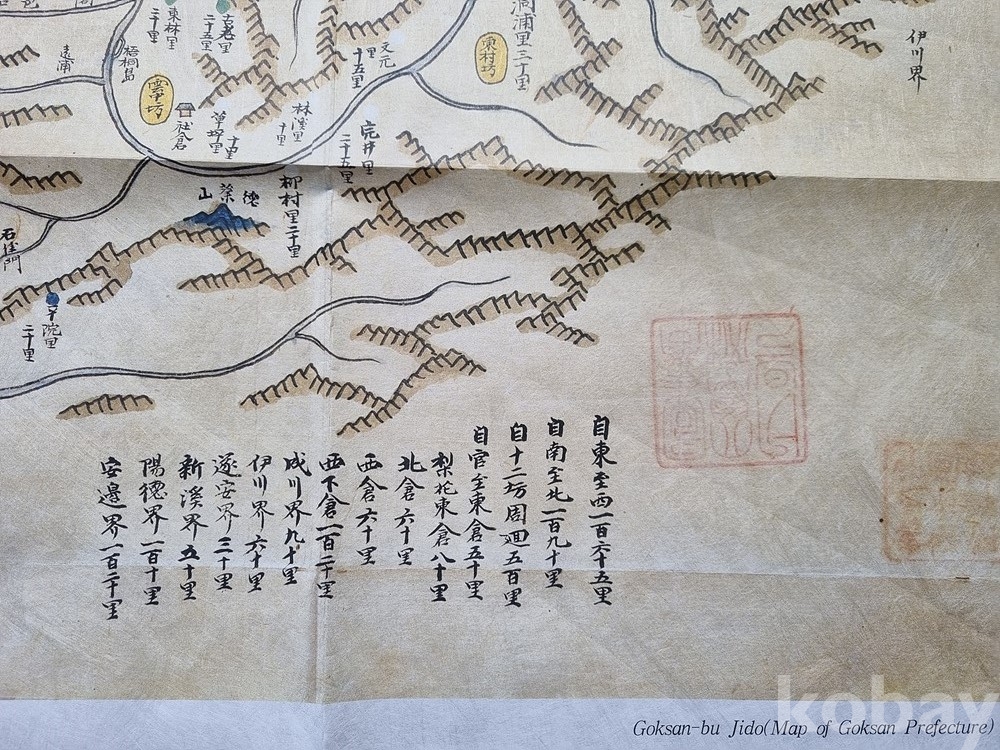 東林里
二十里
古老里
二十五里
遠浦
梧桐島
雲中坊
社倉
草坪里
十里
林溪里
十里
文元里
十五里
洞浦里三十里
東村坊
伊川界
完井里
二十五里
柳村里二十里
德業山
石隅門
平院里
二十里
自東至西一百六十五里
自南至北一百九十里
自十二坊周廻五百里
自官至東倉五十里
梨花東倉八十里
北倉六十里
西倉六十里
西下倉一百二十里
成川界九十里
伊川界六十里
遂安界三十里
新溪界五十里
陽德界一百十里
安邊界一百二十里
kobay
Goksan-bu Jido(Map of Goksan Prefecture)